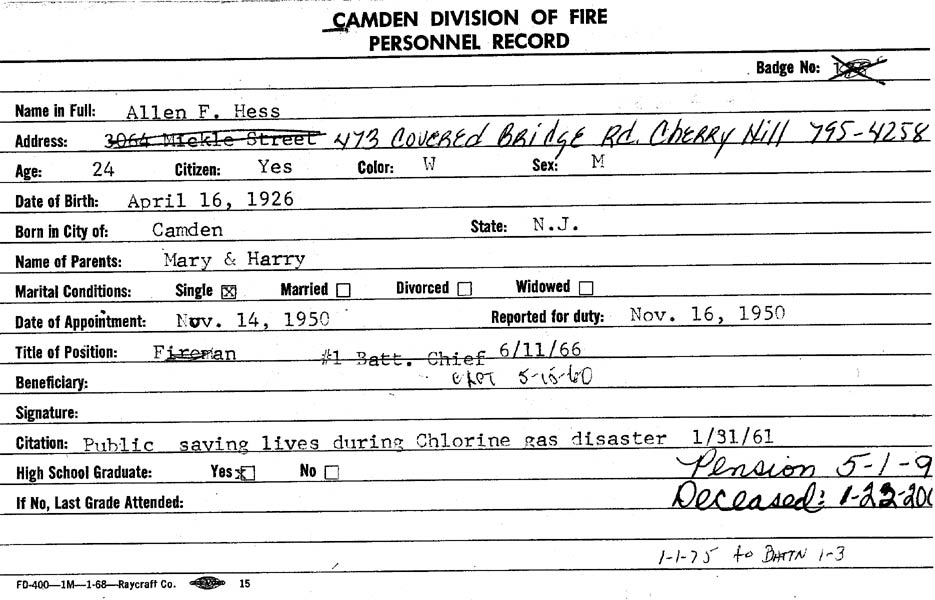 CAMDEN DIVISION OF FIRE
PERSONNEL RECORD
Badge No:
Name in Full: Allen F. Hess
Address: 3064 Mickle Street 473 COVERED BRIDGE Rd. CHERRY Hill 795-4258
Age: 24 Citizen: Yes Color: W Sex: M
Date of Birth: April 16, 1926
Born in City of: Camden State: N.J.
Name of Parents: Mary & Harry
Marital Conditions: Single ☒ Married ☐ Divorced ☐ Widowed ☐
Date of Appointment: Nov. 14, 1950 Reported for duty: Nov. 16, 1950
Title of Position: Fireman #1 Batt. Chief 6/11/66
Beneficiary: CAPT 5-15-60
Signature:
Citation: Public saving lives during Chlorine gas disaster 1/31/61
High School Graduate: Yes ☒ No ☐ Pension 5-1-9
If No, Last Grade Attended: Deceased: 1-22-200
1-1-75 to BATTN 1-3
FD-400—1M—1-68—Raycraft Co. 15